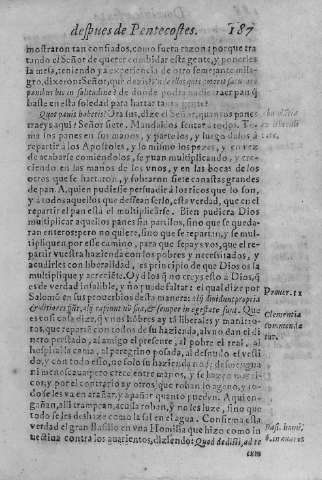 despues de Pentecostes. 187
mostraron tan confiados, como fuera razon: porque tra
tando el Señor de querer combidar esta gente, y ponerles
la mesa, teniendo ya experiencia de otro semejante mila-
gro, dixeron: Señor, que
panibus hic in solitudine? de donde podra nadie traer pan q̃
baste en esta soledad para hartar tanta gente?
Quot panes habetis? Ora sus, dize el Señor, quantos panes
traeys aqui? Señor siete. Mandalos sentar a todos. To-
ma los panes en sus manos, y partelos, y luego dalos a
repartir à los Apostoles, y lo mismo los pezes, y en vez
de acabarse comiendolos, se yuan multiplicando, y cre-
ciendo en las manos de los vnos, y en las bocas de los
otros que se hartaron, y sobraron siete canastas grandes
de pan. A quien pudiesse persuadir à los ricos que lo son,
y a todos aquellos que dessean serlo, esta verdad, que en el
repartir el pan està el multiplicarse. Bien pudiera Dios
multiplicar aquellos panes sin partillos, sino que se queda-
ran enteros: pero no quiere, sino que se repartan, y se mul-
tipliquen por esse camino, para que sepays vos, que el re-
partir vuestra hazienda con los pobres y necessitados, y
acudirles con liberalidad, es principio de que Dios os la
multiplique y acreciẽte. Oyd los q̃ no creys esto a Dios, q̃
es de verdad infalible, y no puede faltar: el qual dize por
Salomõ en sus prouerbios desta manera: alij diuidunt propria
& ditiores fiũt, alij rapiunt nõ sua, & semper in egestate sunt. Que
es cosi cosa dize, q̃ vnos hõbres ay tã liberales y manirro-
tos, que reparten con todos de su hazienda, al vno dan el di-
nero prestado, al amigo el presente, al pobre el real, al
hospital la cama, al peregrino posada, al desnudo el vesti
do, y con todo esso, no solo su hazienda
nos crece entre manos, y se hazen mas ri-
cos, y por el contrario ay otros que roban lo ageno, y to-
do se les va en arañar, y apañar quanto pueden. A quien
gañan, alli trampean, acullà roban, y no les luze, sino que
todo se les deshaze como la sal en el agua. Confirma esta
verdad el gran Basilio en vna Homilia que hizo como in
uectiua contra los auarientos, diziendo: Quod dedisti, ad te
Prouer. 11
Clemẽtia
commenda
tur.
Basi. homi.
6. in auaros